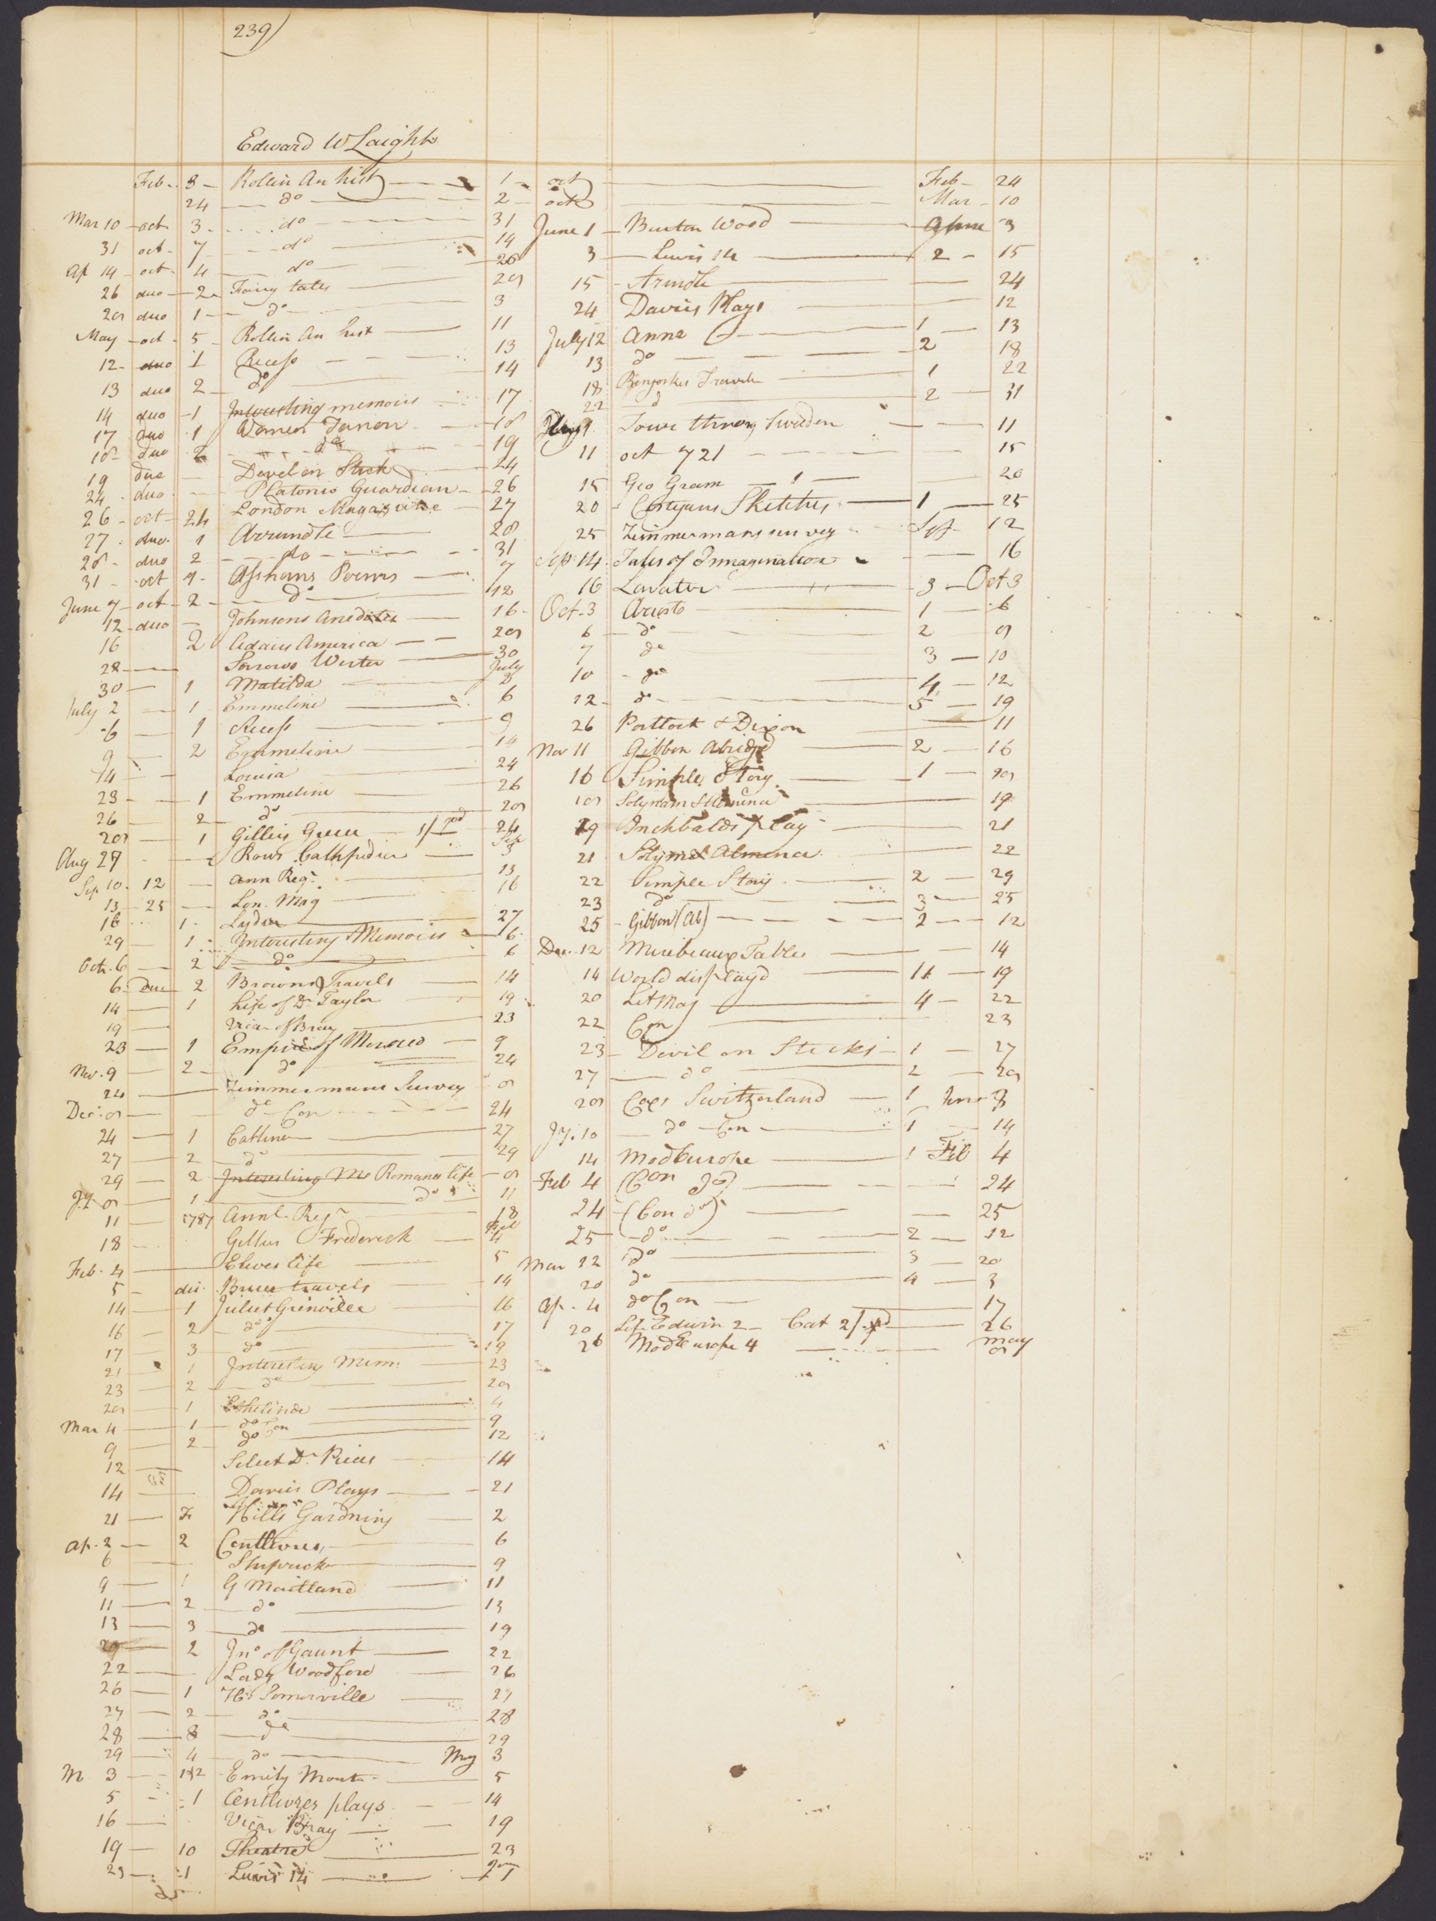 239)
Edward W Laight
Feb 3 Rollin An hist 1
24 do 2
Mar 10 oct 3 do 31
31 oct 7 do 14
Ap 14 oct 4 do 26
26 duo 2 Fairy tales 29
29 duo 1 do 3
May oct 5 Rollin An hist 11
12 duo 1 Recess 13
13 duo 2 do 14
14 duo 1 Interesting memoirs 17
17 duo 1 18
18 duo 2 do 19
19 duo Devil on Stick 24
24 duo Platonic Guardian 26
26 oct 24 London Magazine 27
27 duo 1 Arundle 28
28 duo 2 do 31
31 oct 1 Poems 7
June 7 oct 2 do 12
12 duo Johnsons Anecdotes 16
16 2 Adairs America 28
28 Sorrows Werter 30
30 1 Matilda July 2
July 2 1 Emmeline 6
6 1 Recess 9
9 2 Emmeline 14
14 Louisa 23
23 1 Emmeline 26
26 2 do 29
29 1 Gillies Greece 24
Aug 27 Rows Callipedia Sep 3
Sep 10 12 Ann Regr 13
13 25 Lon. Mag 16
16 1 27
29 1 Interesting Memoirs 6
Octr 6 2 do 6
6 duo 2 Browns Travels 14
14 1 Life of Dr Taylor 19
19 Vicar of Bray 23
23 1 Empire of Morocco 9
Nov. 9 2 do 24
24 Zimmermans Survey 8
Decr 8 do Con 24
24 1 27
27 2 do 29
29 2 Interesting Me Romance life 8
Jy 8 1 do 11
11 1787 Annl. Regr 18
18 Gillies Frederick Feb 4
Feb. 4 Elwes life 5
5 Bruce travels 14
14 1 Juliet Grenville 16
16 2 do 17
17 3 do 19
21 1 Interesting Mem. 23
23 2 do 28
28 1 Ethelinde 4
Mar 4 1 do Con 9
9 2 do 12
12 Select Dr Rices 14
14 Davies Plays 21
21 Hills Gardning 2
Ap. 2 2 Centlivres 6
6 Shipwreck 9
9 1 G Maitland 11
11 2 do 13
13 3 do 19
29 2 Jno of Gaunt 22
22 Lady Woodford 26
26 1 Hy Somerville 27
27 2 do 28
28 3 do 29
29 4 do May 3
M 3 1&2 Emily Mont 5
5 1 Centlivres plays 14
16 Vicar Bray 19
19 10 Theatre 23
23 1 Lewis 14 27
oct Feb 24
oct Mar 10
June 1 Burton Wood June 3
3 Lewis 14 2 15
15 Arundle 24
24 Davies Plays 12
July 12 Anna 1 13
13 do 2 18
18 Travels 1 22
22 do 2 31
Aug 9 Towr throug Sweden 11
11 oct 721 15
15 Geo Gram 1 20
20 Sketches 1 25
25 Zimmermans survey Sep 12
Sep 14 Tales of Immagination 16
16 Lavater 3 Oct 3
Oct. 3 Ariosto 1 6
6 do 2 8
7 do 3 10
10 do 4 12
12 do 5 19
26 Portlock & Dixon 11
Nov 11 Gibbon Abridgd 2 16
16 Simple Story 1 18
18 Solyman & Almena 19
19 Inchbalds play 21
21 Solyma Almena 22
22 Simple Story 2 23
23 do 3 25
25 Gibbon (Ab) 2 12
Dec. 12 Mirabeaux Tables 14
14 World displayd 11 19
20 Lit Mag 4 22
22 Con 23
23 Devil on Sticks 1 27
27 do 2 28
28 Coxes Switzerland 1
Jy. 10 do Con 1 14
14 Mod Europe 1 Feb 4
Feb 4 (Con do) 24
24 (Con do) 25
25 do 2 12
Mar 12 do 3 20
20 do 4 3
Ap. 4 do Con 17
20 Edwin 2 Cat 26
26 Mod Europe 4 May 8